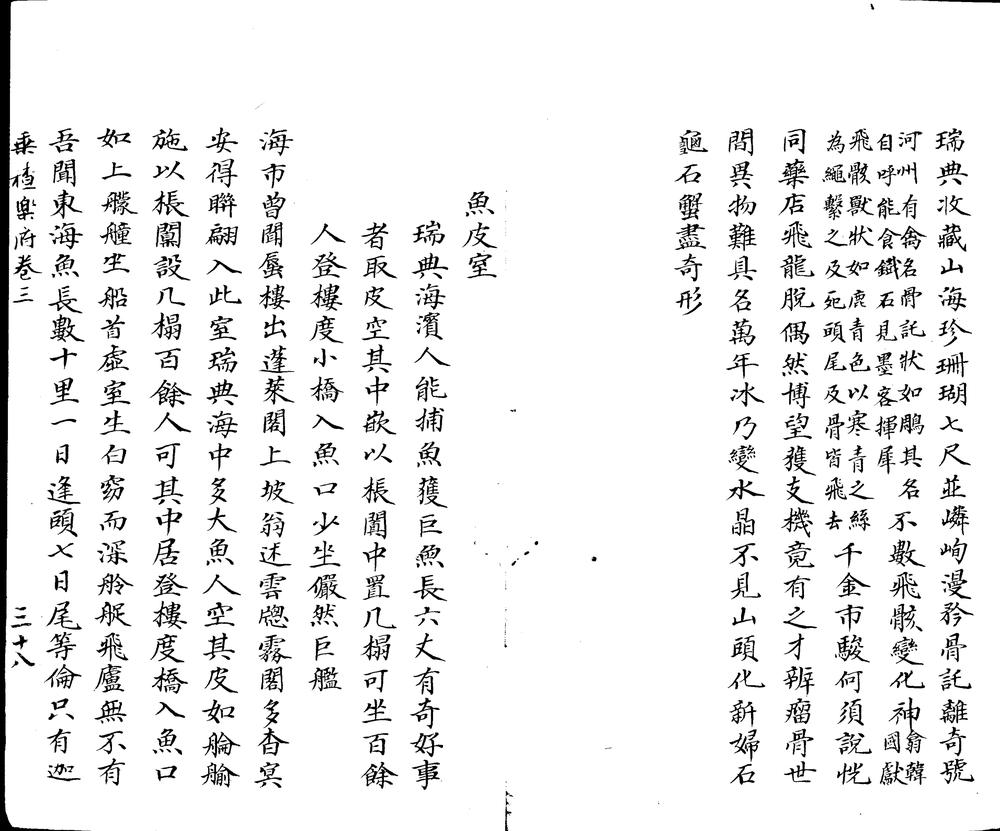 瑞典收藏山海珍珊瑚七尺並嶙峋漫矜骨託離奇號
河州有禽名骨託狀如鵰其名
自呼能食鐵石見墨客揮犀
不數飛骸變化神
翁韓
國獻
飛骸獸狀如鹿青色以寒青之絲
為繩繫之及死頭尾及骨皆飛去
千金市駿何須說恍
同藥店飛龍脫偶然博望獲支機竟有之才辨瘤骨世
間異物難具名萬年冰乃變水晶不見山頭化新婦石
龜石蟹盡奇形
魚皮室
瑞典海濱人能捕魚獲巨魚長六丈有奇好事
者取皮空其中嵌以棖闑中置几榻可坐百餘
人登樓度小橋入魚口少坐儼然巨艦
海市曾聞蜃樓出蓬萊閣上坡翁述雲窗霧閣多杳冥
安得聯翩入此室瑞典海中多大魚人空其皮如艑艑
施以棖闑設几榻百餘人可其中居登樓度橋入魚口
如上艨艟坐船首虛室生白窈而深舲艇飛廬無不有
吾聞東海魚長數十里一日逢頭七日尾等倫只有迦
乘槎樂府卷三
三十八